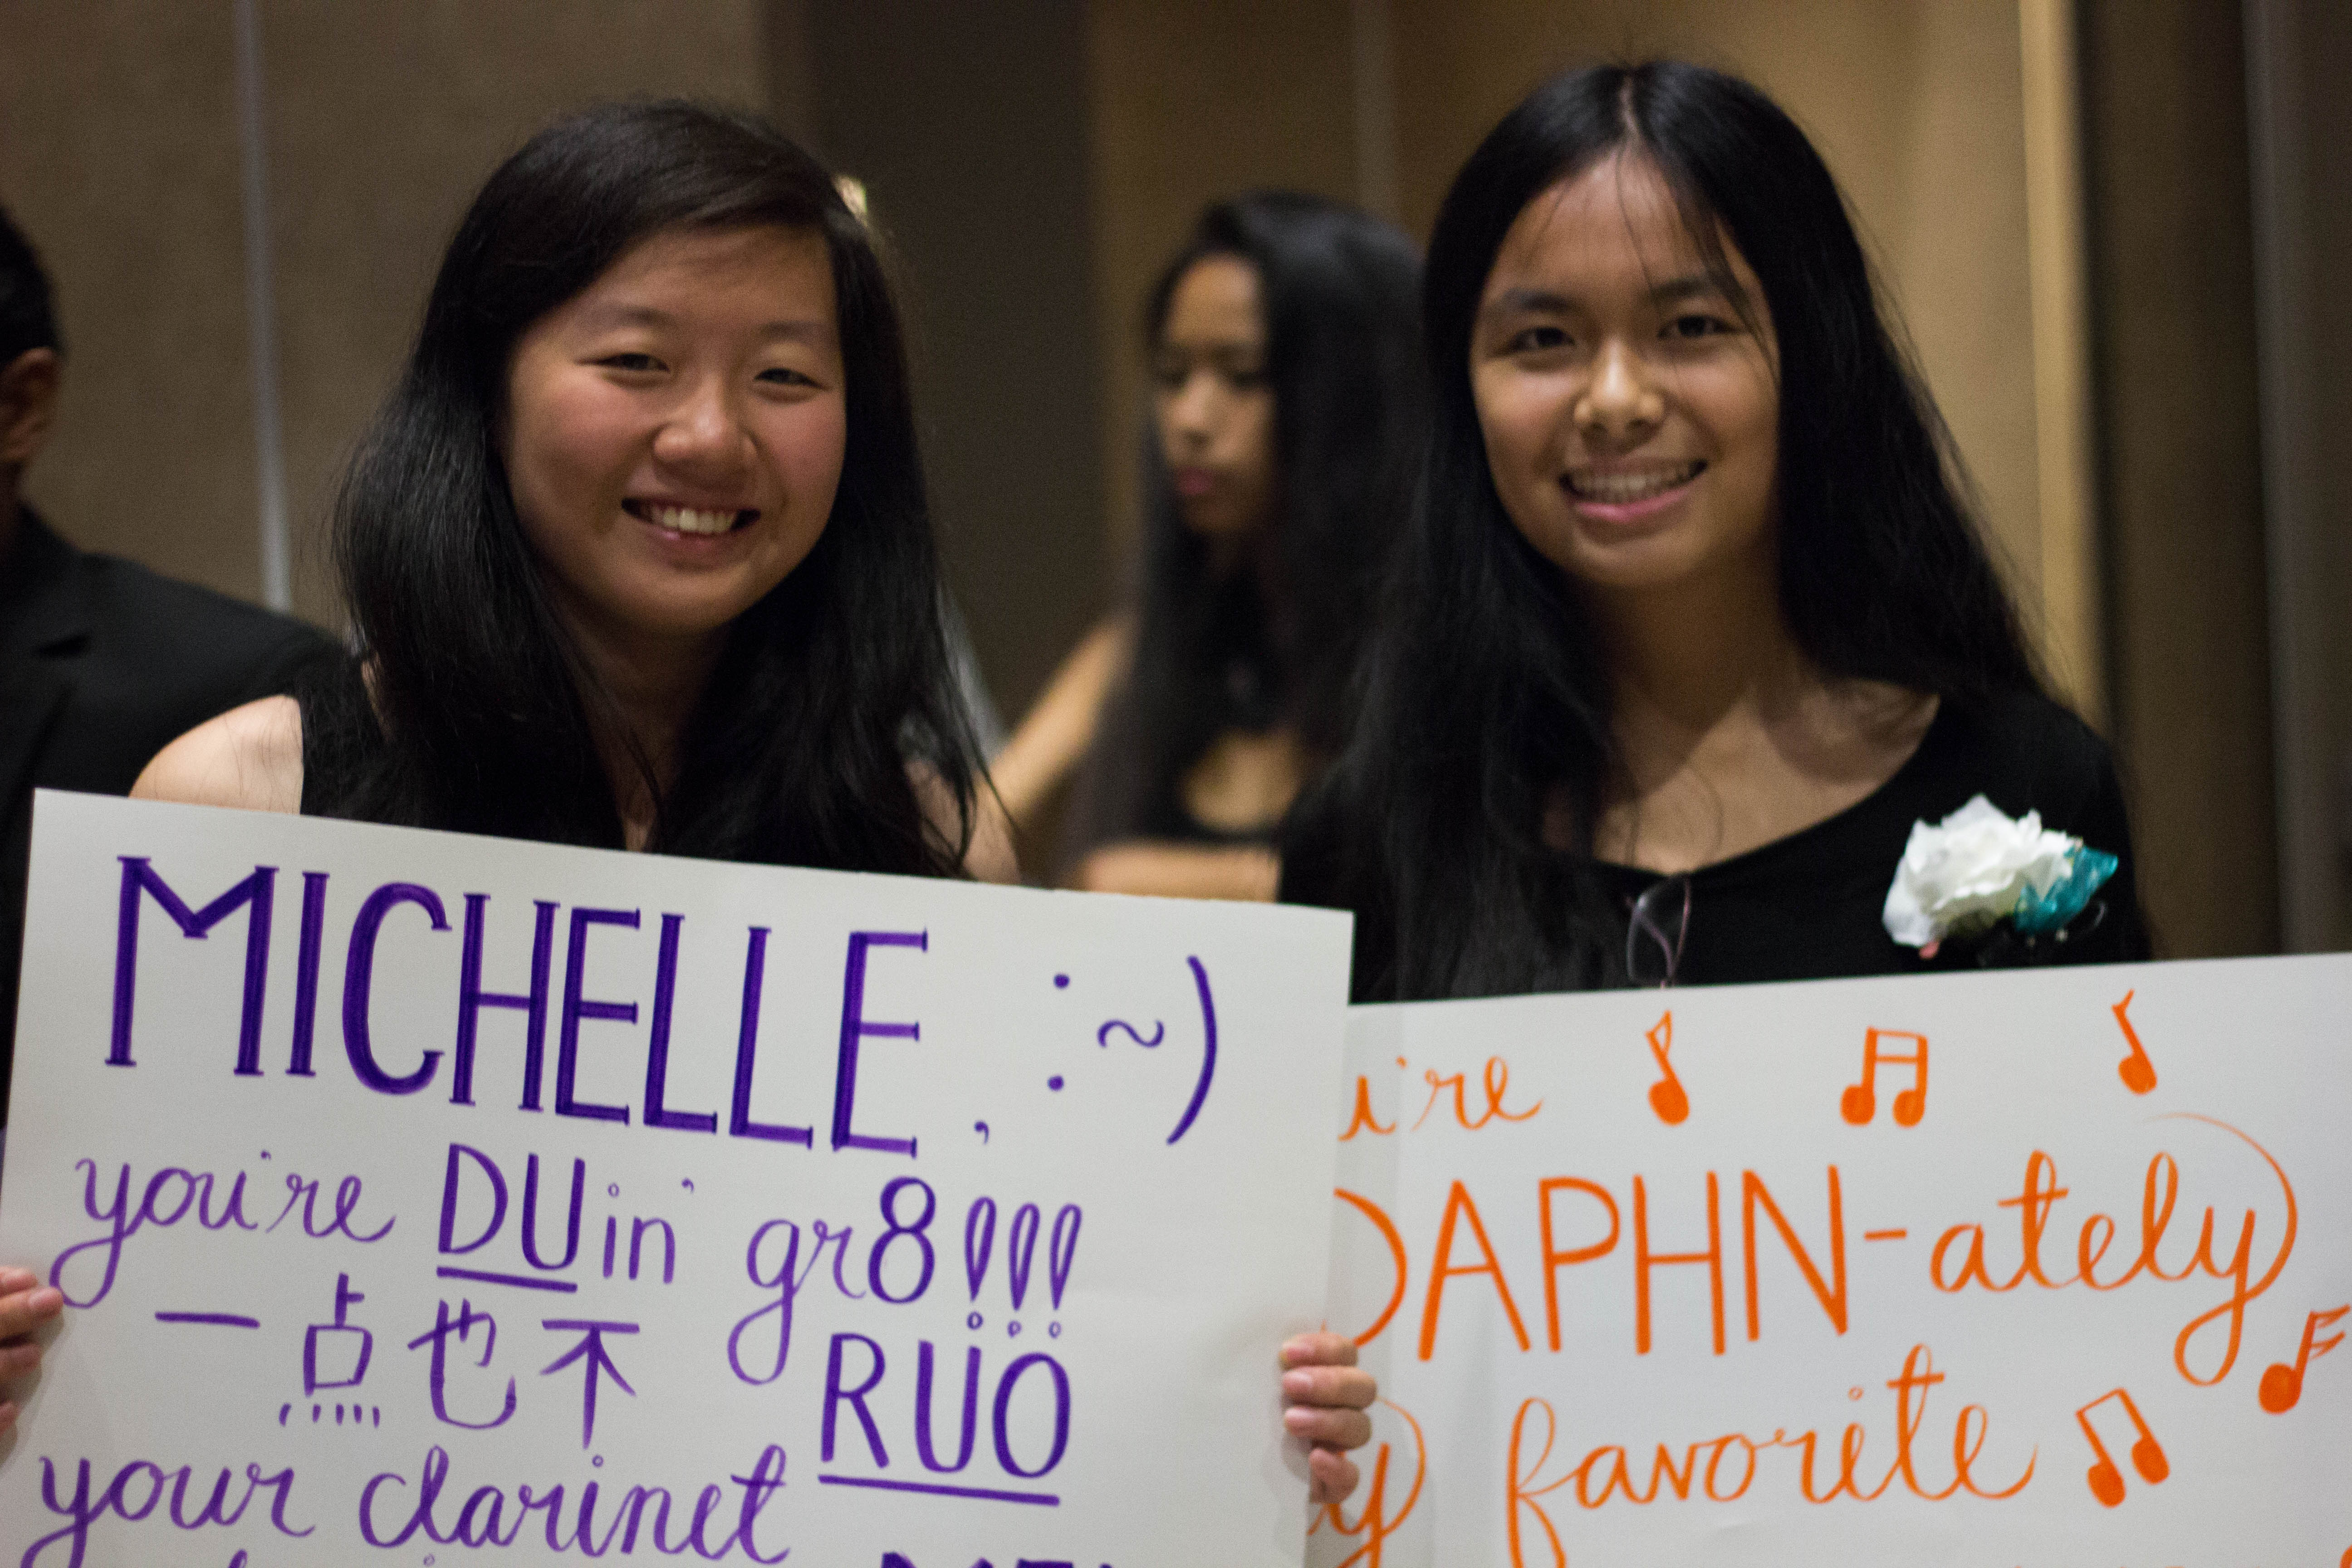 MICHELLE, :~)
you're DUin' gr8!!!
一点也不 RUO
your clarinet
u're
DAPHN-ately
y favorite